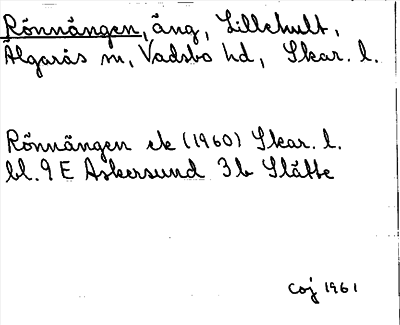 Rönnängen, äng, Lillehult,
Älgarås sn, Vadsbo hd, Skar. l.
Rönnängen ek (1960) Skar. l.
bl. 9 E Askersund 3 b Slätte
Coj 1961